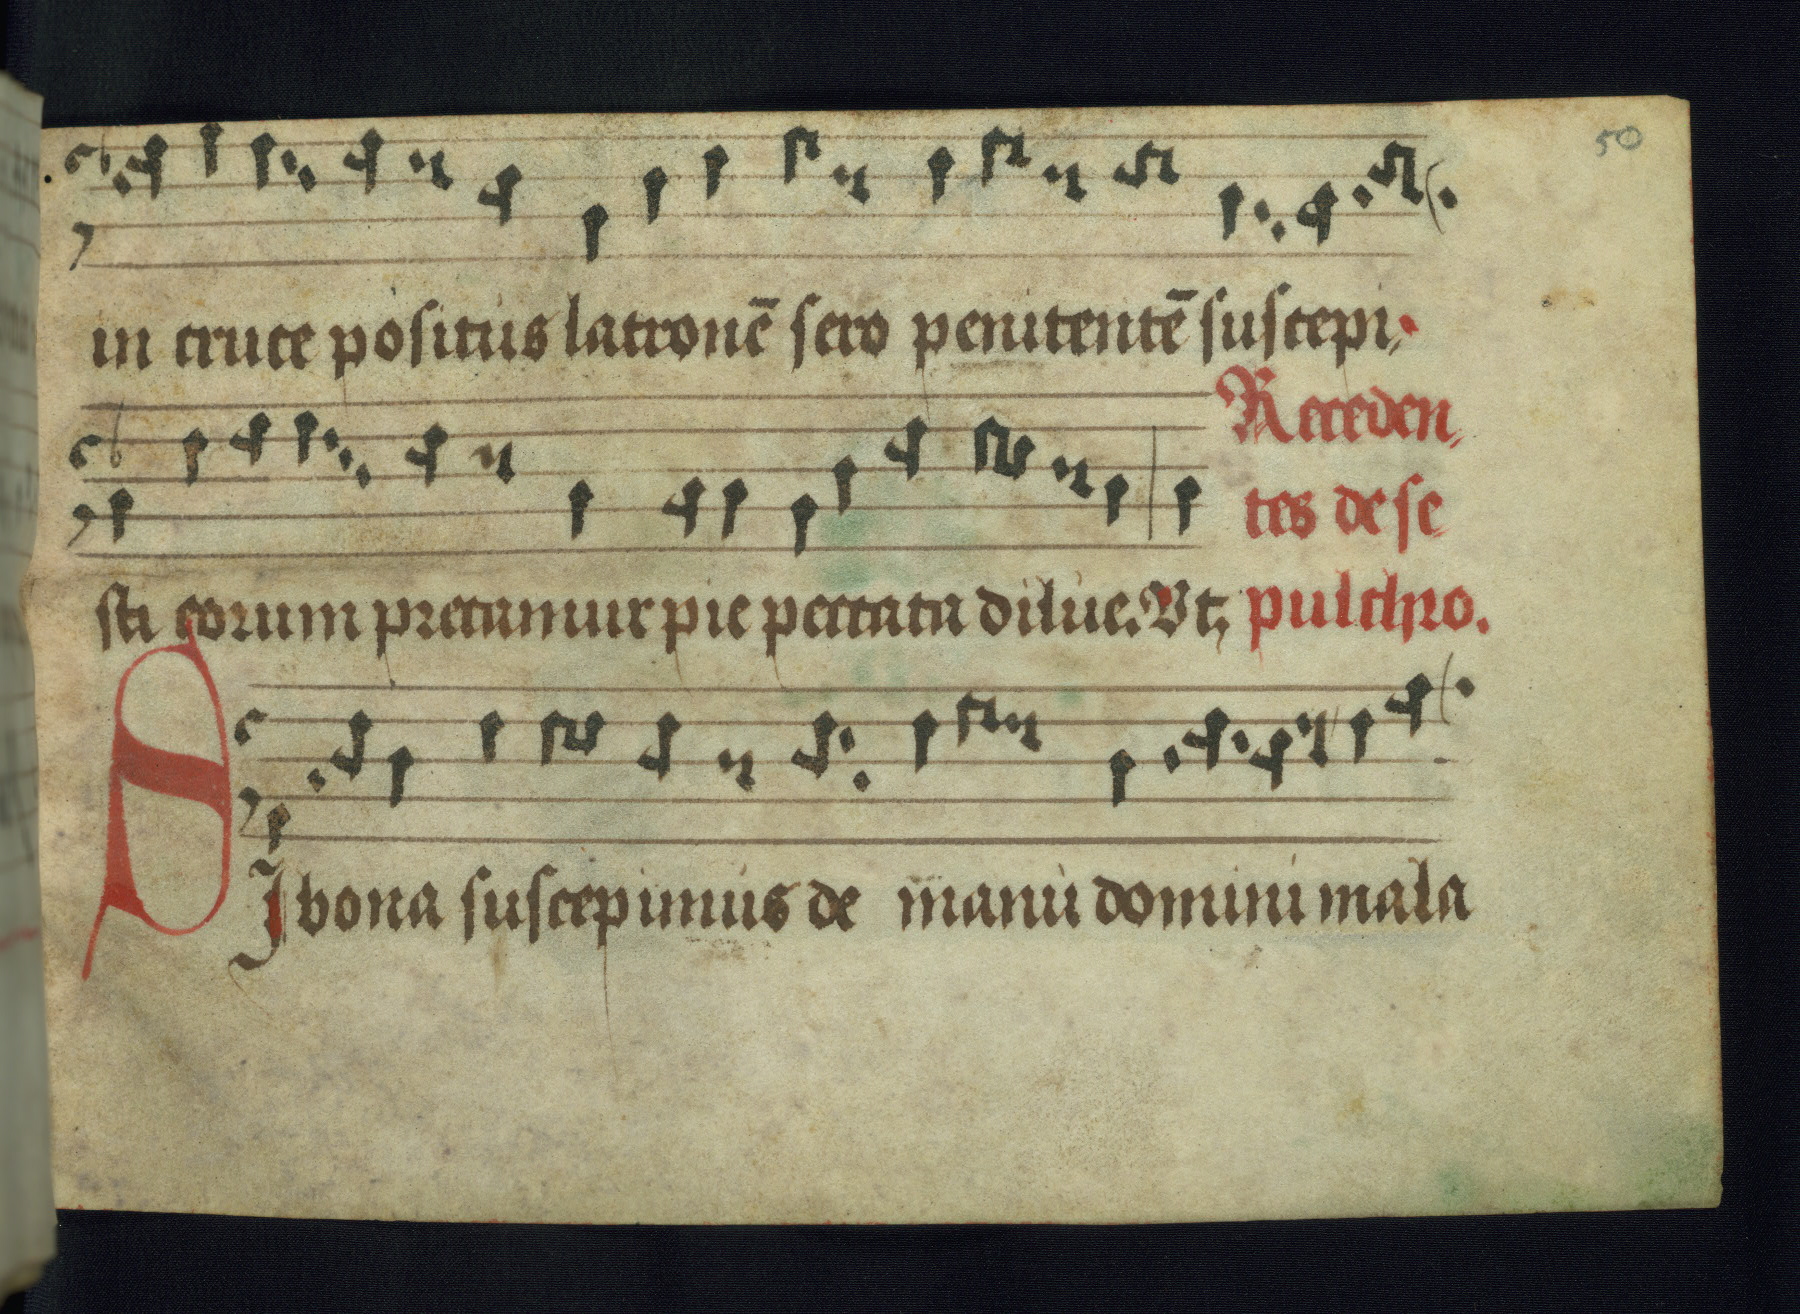 50
in cruce positus latronē sero penitentē suscepi,
Receden,
tes de se
sti eorum precamur pie peccata dilue. Vt, pulchro.
SI bona suscepimus de manu domini mala